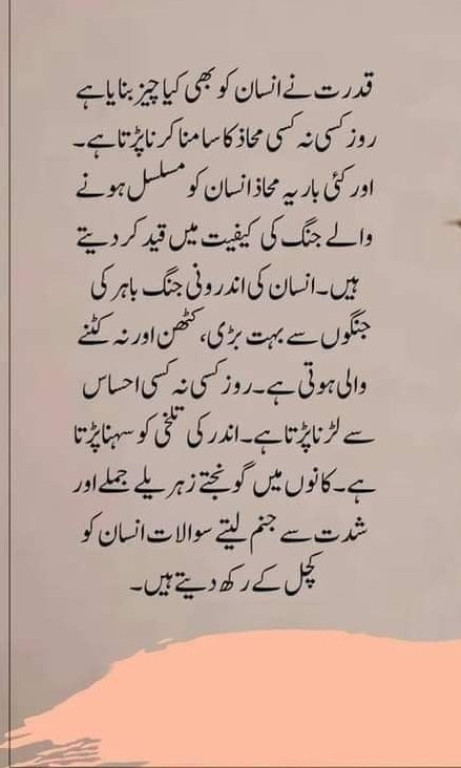 قدرت نے انسان کو بھی کیا چیز بنایا ہے
روز کسی نہ کسی محاذ کا سامنا کرنا پڑتا ہے۔
اور کئی بار یہ محاذ انسان کو مسلسل ہونے
والے جنگ کی کیفیت میں قید کر دیتے
ہیں۔انسان کی اندرونی جنگ باہر کی
جنگوں سے بہت بڑی، کٹھن اور نہ کٹنے
والی ہوتی ہے۔روز کسی نہ کسی احساس
سے لڑنا پڑتا ہے۔اندر کی تلخی کو سہنا پڑتا
ہے۔کانوں میں گونجتے زہریلے جملے اور
شدت سے جنم لیتے سوالات انسان کو
کچل کے رکھ دیتے ہیں۔